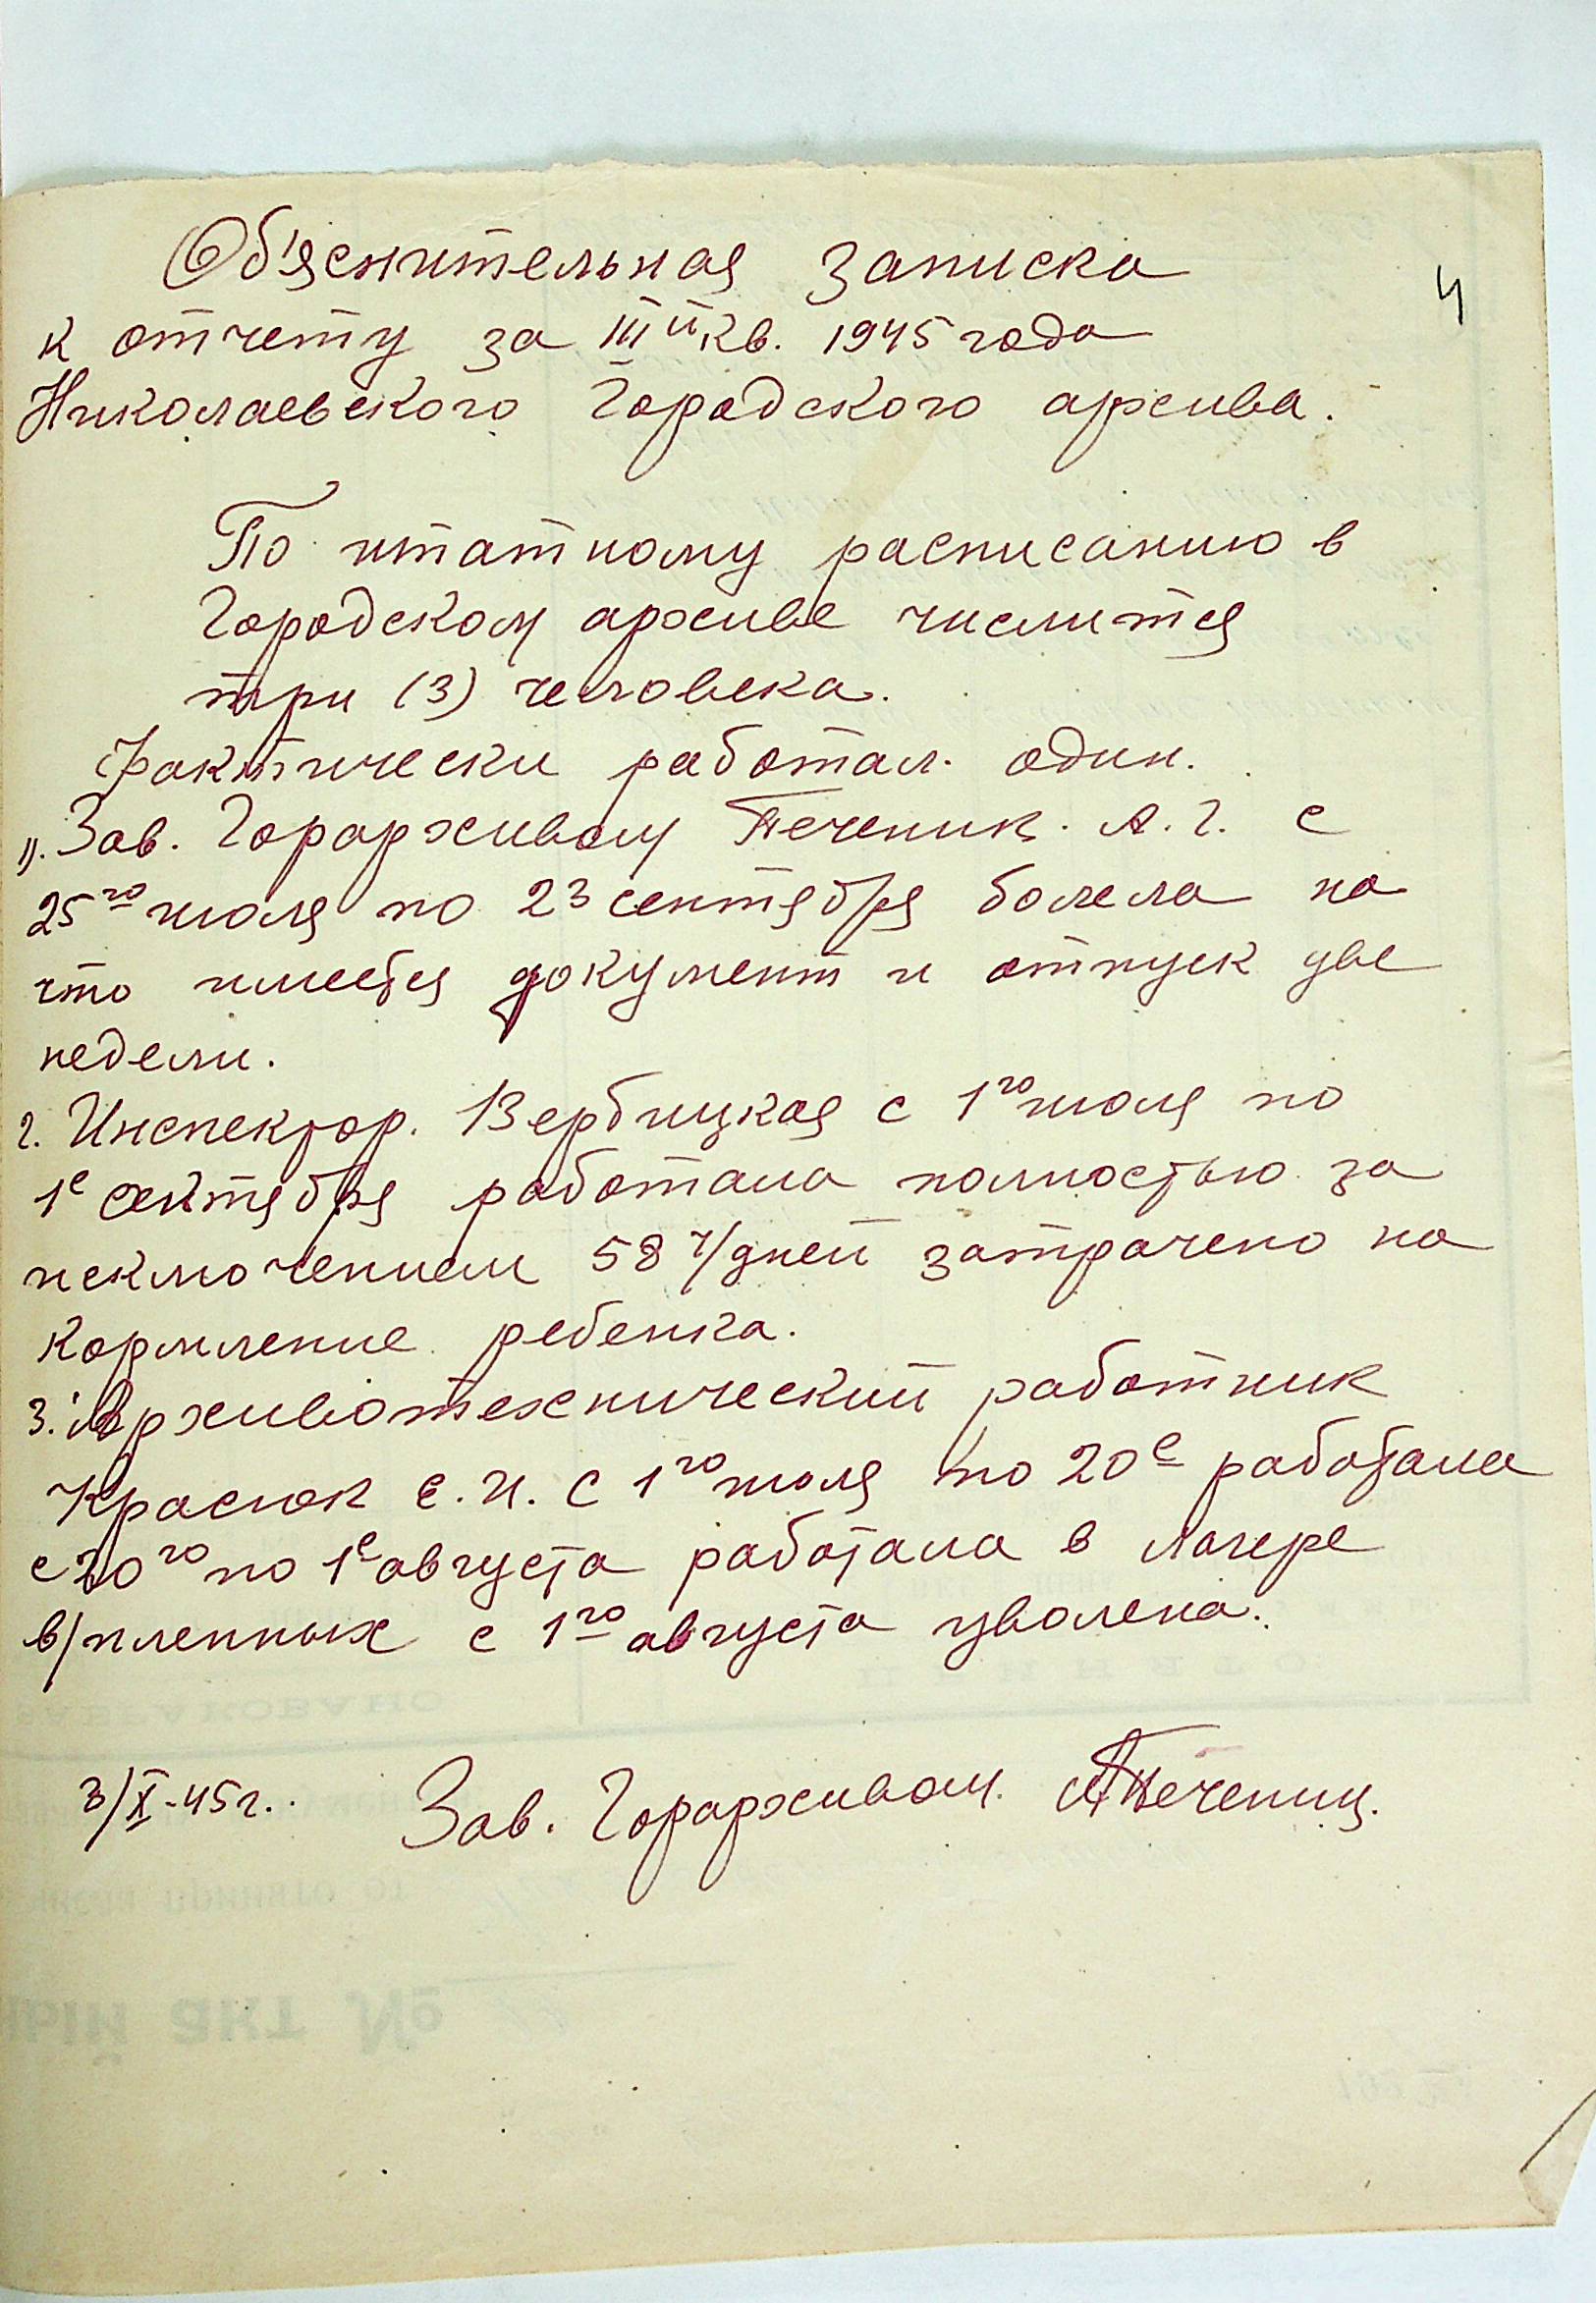 Об'яснительная записка
4
к отчету за III й кв. 1945 года
Николаевского Городского архива.
По штатному расписанию в
Городском архиве числится
три (3) человека.
Фактически работал. один.
1). Зав. Горархивом Печеник. А. Г. с
25го июля по 23 сентября болела на
что имеется документ и отпуск две
недели.
2. Инспектор. Вербицкая с 1го июля по
1е сентября работала полностью за
исключением 58 ч/дней затрачено на
кормление ребенка.
3. Архивотехнический работник
Краснок Е. И. с 1го июля по 20е работала
с 20го по 1е августа работала в лагере
в/пленных с 1го августа уволена.
3/X-45г. Зав. Горархивом. АПеченик.